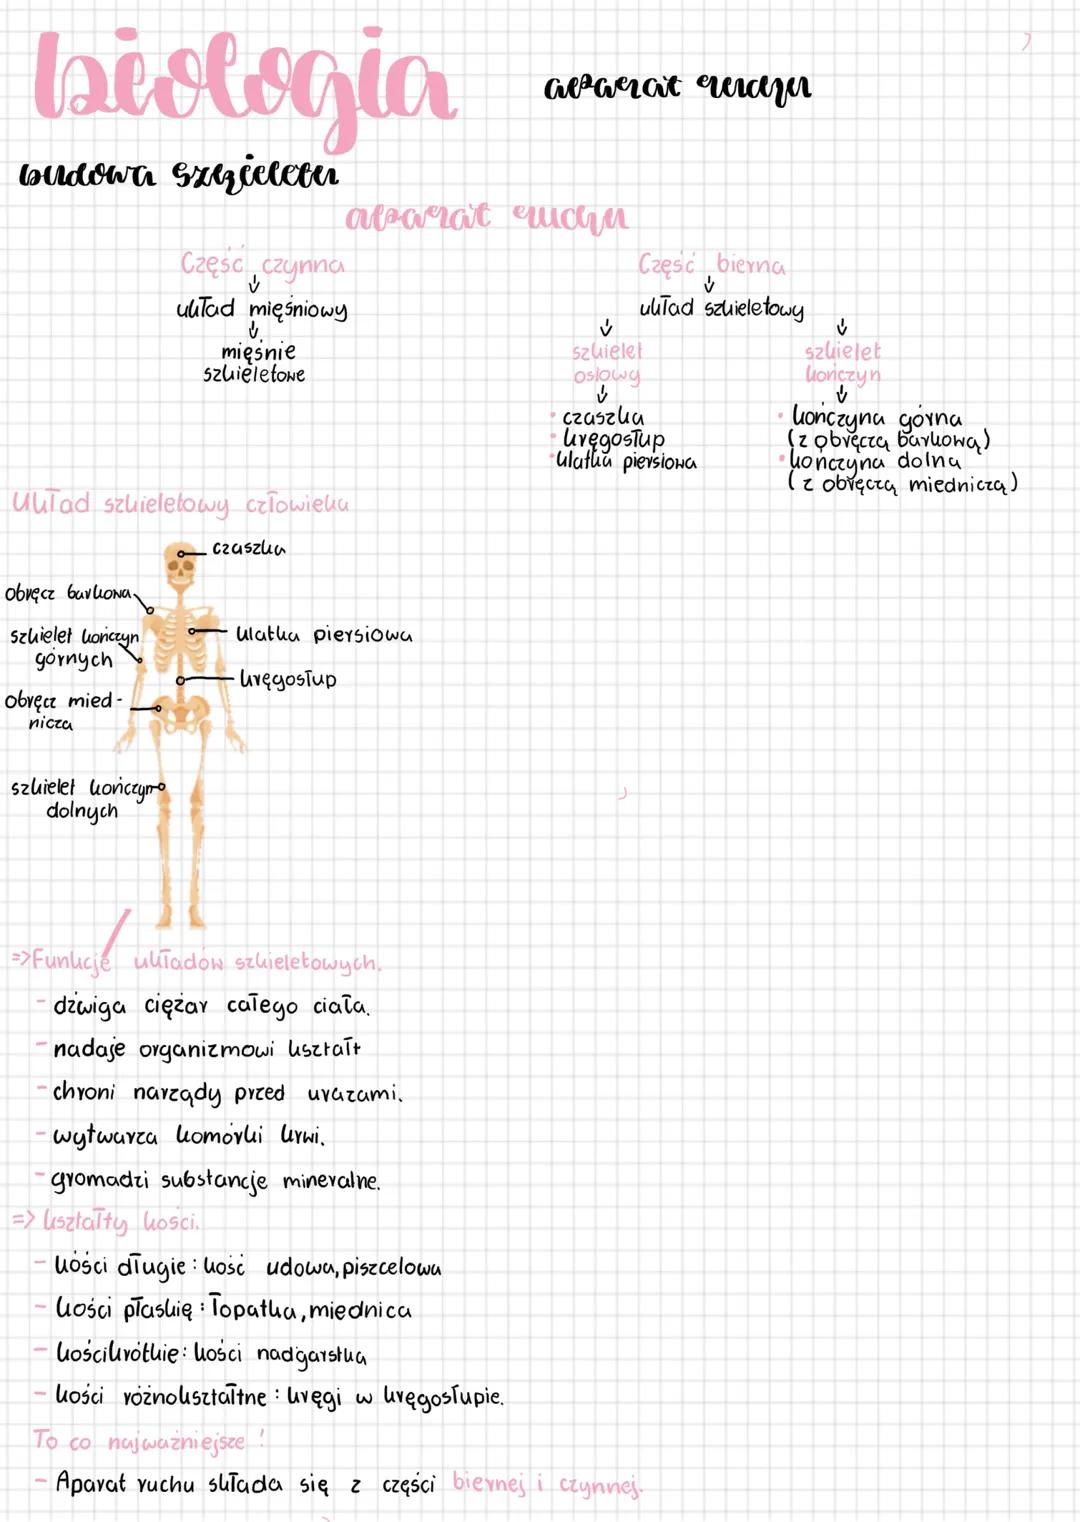 biologia
aparat ruchu
budowa szkieletu
aparat ruchu
Część czynna
Część bierna
układ mięśniowy
układ szkieletowy
mięśnie
szkieletowe
szkielet
osiowy
szkielet
kończyn
• czaszka
• kręgosłup
• klatka piersiowa
• kończyna górna
(z obręczą barkową)
• kończyna dolna
(z obręczą miedniczą)
Układ szkieletowy człowieka
czaszka
obręcz barkowa
szkielet kończyn
górnych
klatka piersiowa
kręgosłup
obręcz mied-
nicza
szkielet kończyn
dolnych
=> Funkcje układów szkieletowych.
- dźwiga ciężar całego ciała.
- nadaje organizmowi kształt
- chroni narządy przed urazami.
- wytwarza komórki krwi.
- gromadzi substancje mineralne.
=> kształty kości.
- kości długie : kość udowa, piszczelowa
- kości płaskie : łopatka, miednica
- kości krótkie : kości nadgarstka
- kości różnokształtne : kręgi w kręgosłupie.
To co najważniejsze !
- Aparat ruchu składa się z części biernej i czynnej.